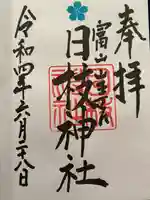 奉拝
富山山王さん
日枝神社
令和四年六月二十八日